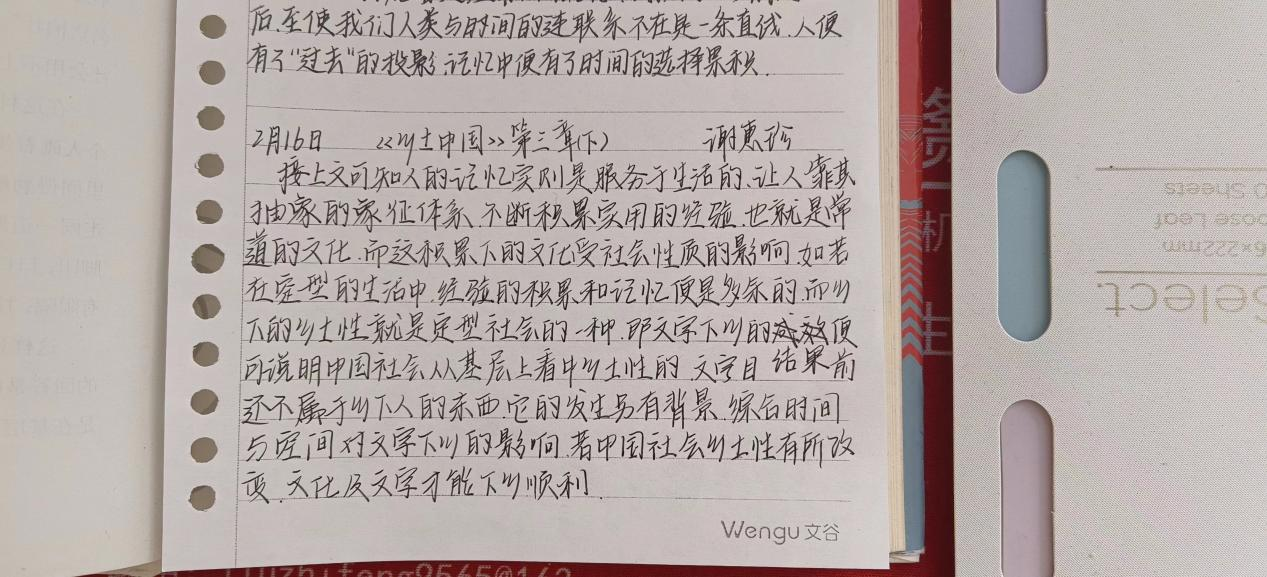 后,至使我们人类与时间的连联系不在是一条直线.人便
有了“过去”的投影,记忆中便有了时间的选择累积.
2月16日 《乡土中国》第三章(下) 谢惠珍
接上文可知人的记忆实则是服务于生活的,让人靠其
抽象的象征体系,不断积累实用的经验,也就是常
道的文化.而这积累下的文化受社会性质的影响,如若
在定型的生活中,经验的积累和记忆便是多余的,而乡
下的乡土性就是定型社会的一种,即文字下乡的成效便
可说明中国社会从基层上看中乡土性的 文字目 结果前
还不属于乡下人的东西,它的发生另有背景.综合时间
与空间对文字下乡的影响,若中国社会乡土性有所改
变,文化及文字才能下乡顺利.
Wengu 文谷
机
生
Sheets
oose Leaf
×222mm
Select.